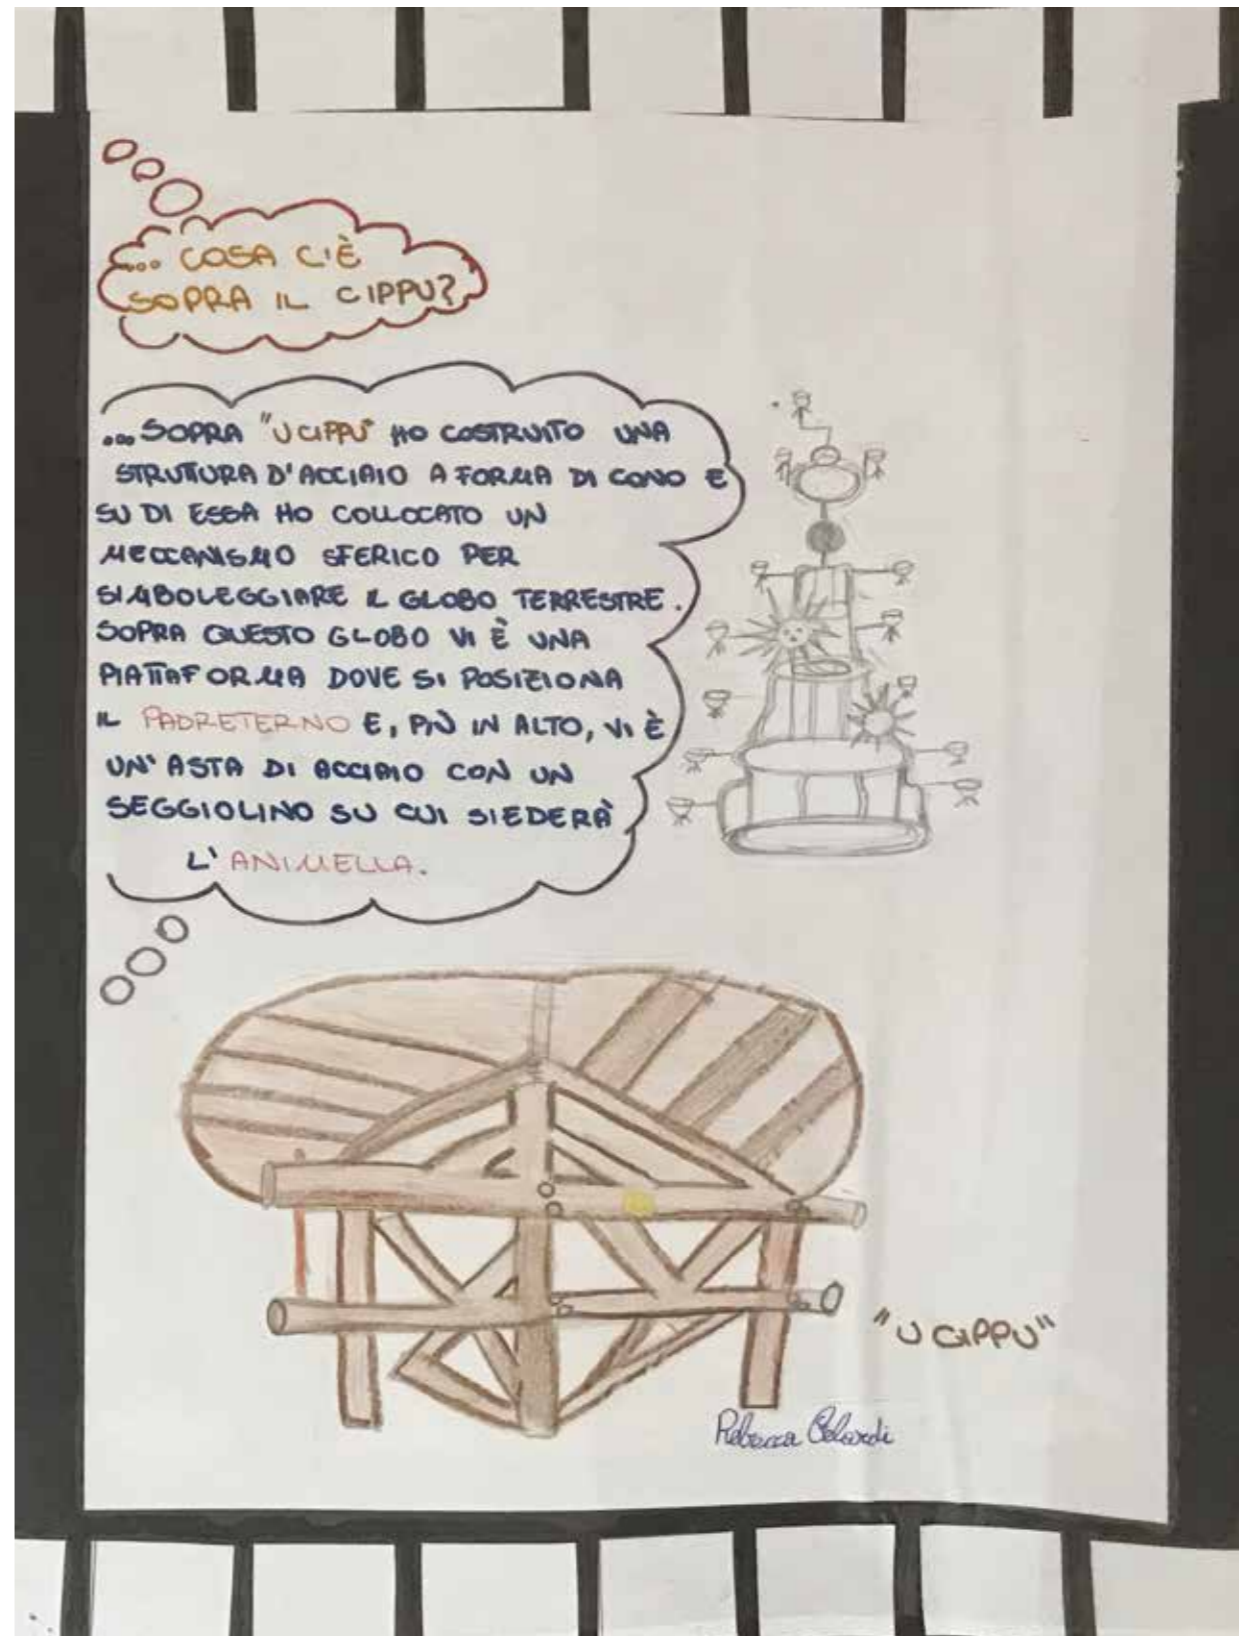 ... COSA C'È
SOPRA IL CIPPU?
... SOPRA "U CIPPU" HO COSTRUITO UNA
STRUTTURA D'ACCIAIO A FORMA DI CONO E
SU DI ESSA HO COLLOCATO UN
MECCANISMO SFERICO PER
SIMBOLEGGIARE IL GLOBO TERRESTRE.
SOPRA QUESTO GLOBO VI È UNA
PIATTAFORMA DOVE SI POSIZIONA
IL PADRETERNO E, PIÙ IN ALTO, VI È
UN'ASTA DI ACCIAIO CON UN
SEGGIOLINO SU CUI SIEDERÀ
L'ANIMELLA.
"U CIPPU"
Rebecca Celardi